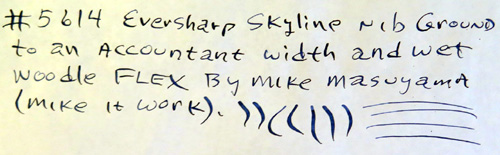 #5614 Eversharp Skyline nib Ground
to an Accountant width and wet
woodle FLEX By mike masuyama
(mike it work).